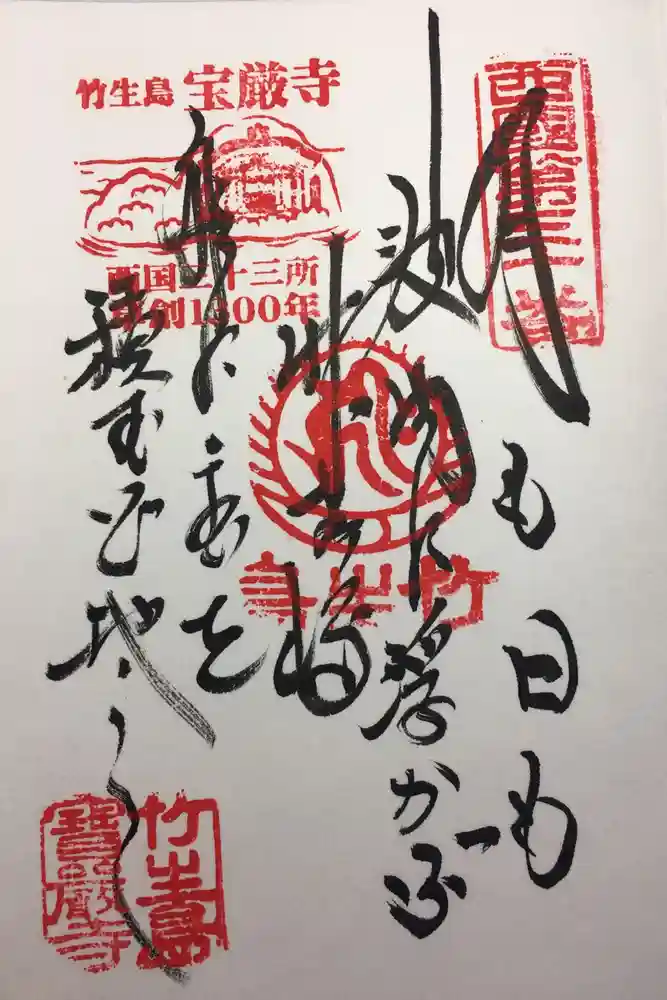 西國第三十番
月も日も
波間に浮かぶ
竹生嶋
船に宝を
積む心地して
竹生島 宝厳寺
西国三十三所
草創1300年
竹生島
竹生島
寶嚴寺